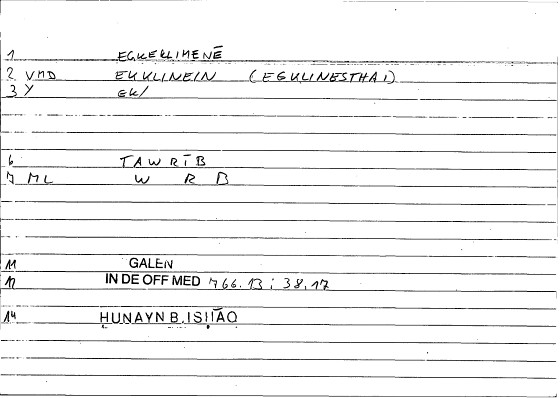 1 EGKEKLIMENĒ
2 VMD EKKLINEIN (EGKLINESTHAI)
3 Y EK/
6 TAWRĪB
7 ML W R B
11 GALEN
12 IN DE OFF MED 766.13 ; 38,17
14 ḤUNAYN B. ISḤĀQ